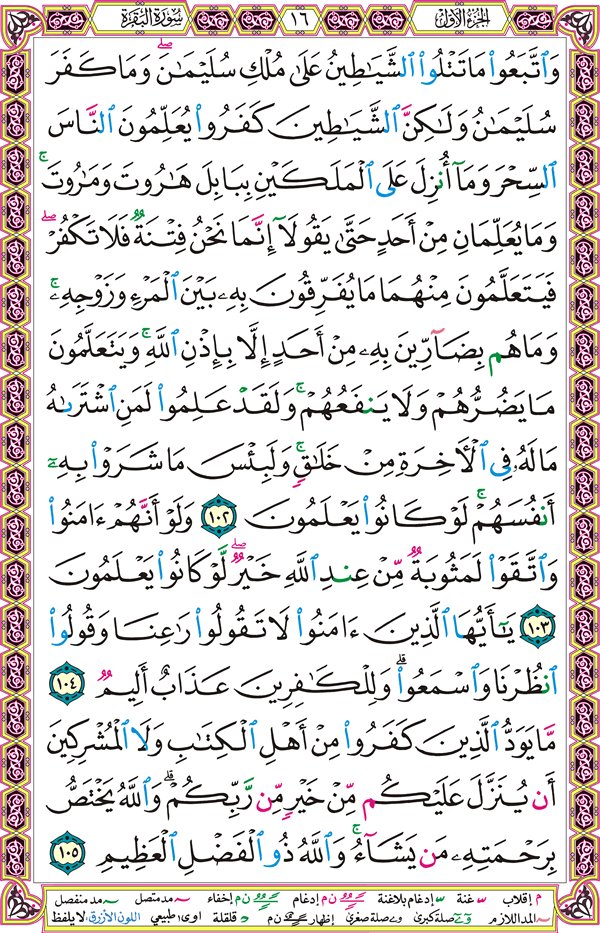 الجزء الأول
١٦
سورة البقرة
وَٱتَّبَعُوا۟ مَا تَتْلُوا۟ ٱلشَّيَـٰطِينُ عَلَىٰ مُلْكِ سُلَيْمَـٰنَ ۖ وَمَا كَفَرَ
سُلَيْمَـٰنُ وَلَـٰكِنَّ ٱلشَّيَـٰطِينَ كَفَرُوا۟ يُعَلِّمُونَ ٱلنَّاسَ
ٱلسِّحْرَ وَمَآ أُنزِلَ عَلَى ٱلْمَلَكَيْنِ بِبَابِلَ هَـٰرُوتَ وَمَـٰرُوتَ ۚ
وَمَا يُعَلِّمَانِ مِنْ أَحَدٍ حَتَّىٰ يَقُولَآ إِنَّمَا نَحْنُ فِتْنَةٌ فَلَا تَكْفُرْ ۖ
فَيَتَعَلَّمُونَ مِنْهُمَا مَا يُفَرِّقُونَ بِهِۦ بَيْنَ ٱلْمَرْءِ وَزَوْجِهِۦ ۚ
وَمَا هُم بِضَآرِّينَ بِهِۦ مِنْ أَحَدٍ إِلَّا بِإِذْنِ ٱللَّهِ ۚ وَيَتَعَلَّمُونَ
مَا يَضُرُّهُمْ وَلَا يَنفَعُهُمْ ۚ وَلَقَدْ عَلِمُوا۟ لَمَنِ ٱشْتَرَىٰهُ
مَا لَهُۥ فِى ٱلْـَٔاخِرَةِ مِنْ خَلَـٰقٍ ۚ وَلَبِئْسَ مَا شَرَوْا۟ بِهِۦٓ
أَنفُسَهُمْ ۚ لَوْ كَانُوا۟ يَعْلَمُونَ ١٠٢ وَلَوْ أَنَّهُمْ ءَامَنُوا۟
وَٱتَّقَوْا۟ لَمَثُوبَةٌ مِّنْ عِندِ ٱللَّهِ خَيْرٌ ۖ لَّوْ كَانُوا۟ يَعْلَمُونَ
١٠٣ يَـٰٓأَيُّهَا ٱلَّذِينَ ءَامَنُوا۟ لَا تَقُولُوا۟ رَٰعِنَا وَقُولُوا۟
ٱنظُرْنَا وَٱسْمَعُوا۟ ۗ وَلِلْكَـٰفِرِينَ عَذَابٌ أَلِيمٌ ١٠٤
مَّا يَوَدُّ ٱلَّذِينَ كَفَرُوا۟ مِنْ أَهْلِ ٱلْكِتَـٰبِ وَلَا ٱلْمُشْرِكِينَ
أَن يُنَزَّلَ عَلَيْكُم مِّنْ خَيْرٍ مِّن رَّبِّكُمْ ۗ وَٱللَّهُ يَخْتَصُّ
بِرَحْمَتِهِۦ مَن يَشَآءُ ۚ وَٱللَّهُ ذُو ٱلْفَضْلِ ٱلْعَظِيمِ ١٠٥
م إقلاب غنة إدغام بلاغنة ن م إدغام ن م إخفاء مد متصل مد منفصل
المد اللازم صلة كبرى صلة صغرى إظهار ن م قلقلة اوى: طبيعي اللون الأزرق: لا يلفظ